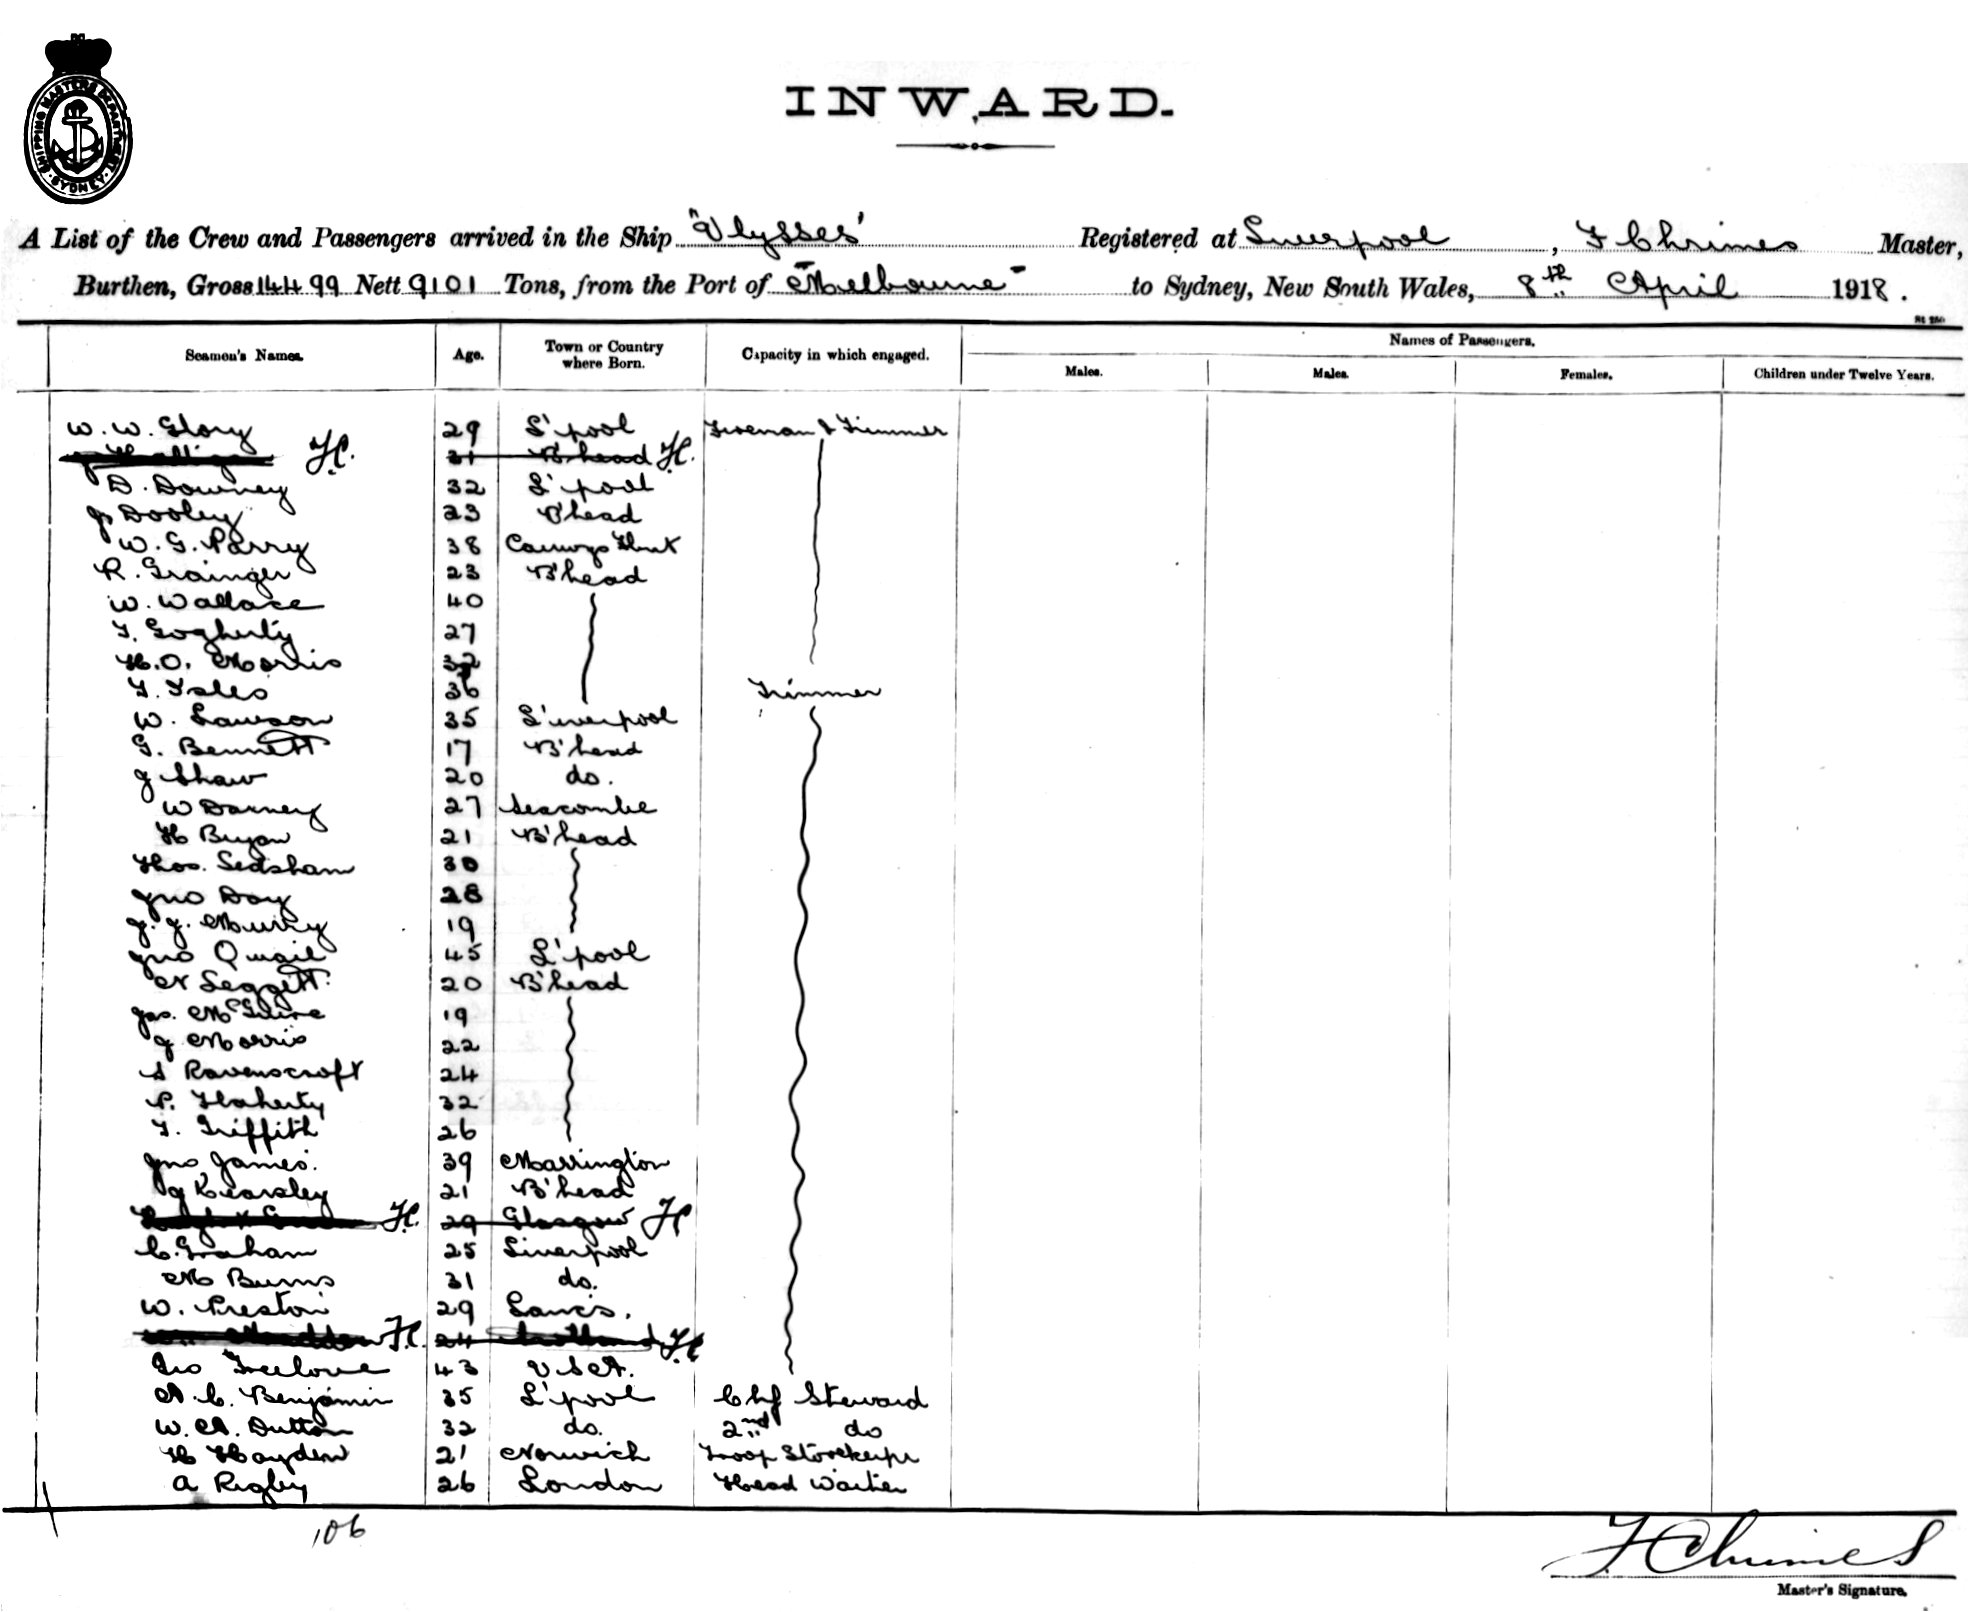 SHIPPING MASTERS DEPARTMENT
SYDNEY
INWARD.
A List of the Crew and Passengers arrived in the Ship "Ulysses" Registered at Liverpool, F Chrimes Master,
Burthen, Gross 14499 Nett 9101 Tons, from the Port of Melbourne to Sydney, New South Wales, 8th April 1918.
Seamen's Names. Age. Town or Country where Born. Capacity in which engaged. Names of Passengers.
Males. Males. Females. Children under Twelve Years.
W. W. Glory 29 L'pool Fireman & Trimmer
31 B'head
D. Downey 32 L'pool
J Dooley 23 B'head
W. G. Parry 38 Flint
R. Grainger 23 B'head
W. Wallace 40
T. Gogherty 27
H. O. Morris 32
T. 36 Trimmer
W. Lawson 35 L'iverpool
G. Bennett 17 B'head
J Shaw 20 do.
W Darney 27 Seacombe
H Bryan 21 B'head
Thos. Ledsham 30
Jno Day 28
J. J. Murry 19
Jno Quail 45 L'pool
N Leggett 20 B'head
Jas. McGuire 19
J Morris 22
S Ravenscroft 24
P. Flaherty 32
T. Griffith 26
Jno James. 39 Marrington
J Kearsley 21 B'head
29 Glasgow
C. Graham 25 Liverpool
M Burns 31 do.
W. Preston 29 Lancs.
24
Geo Freelove 43 U S A.
A. C. Benjamin 35 L'pool Chf Steward
W. A. Dutton 32 do. 2nd do
H Hayden 21 Norwich Troop Storekeepr
A Rigby 26 London Head Waiter
106
F Chrimes
Master's Signature.